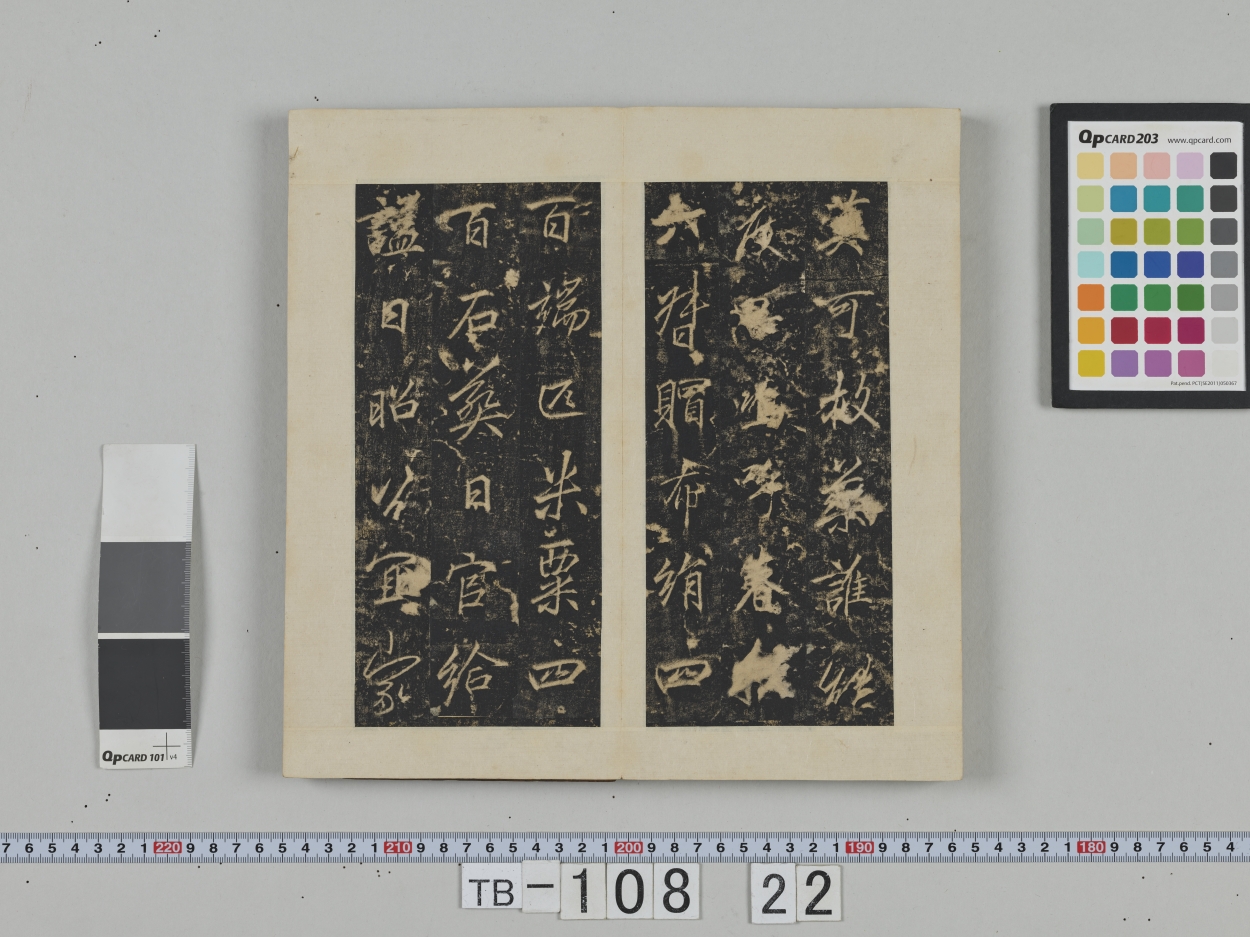 莫可救誰
嗚呼春秋
六賵布絹四
百端匹米粟四
百石葬日官給
謚曰昭公宜家
QpCARD 203 www.qpcard.com
QpCARD 101 v4
7 6 5 4 3 2 1 220 9 8 7 6 5 4 3 2 1 210 9 8 7 6 5 4 3 2 1 200 9 8 7 6 5 4 3 2 1 190 9 8 7 6 5 4 3 2 1 180 9 8 7 6 5 4
TB-108 22